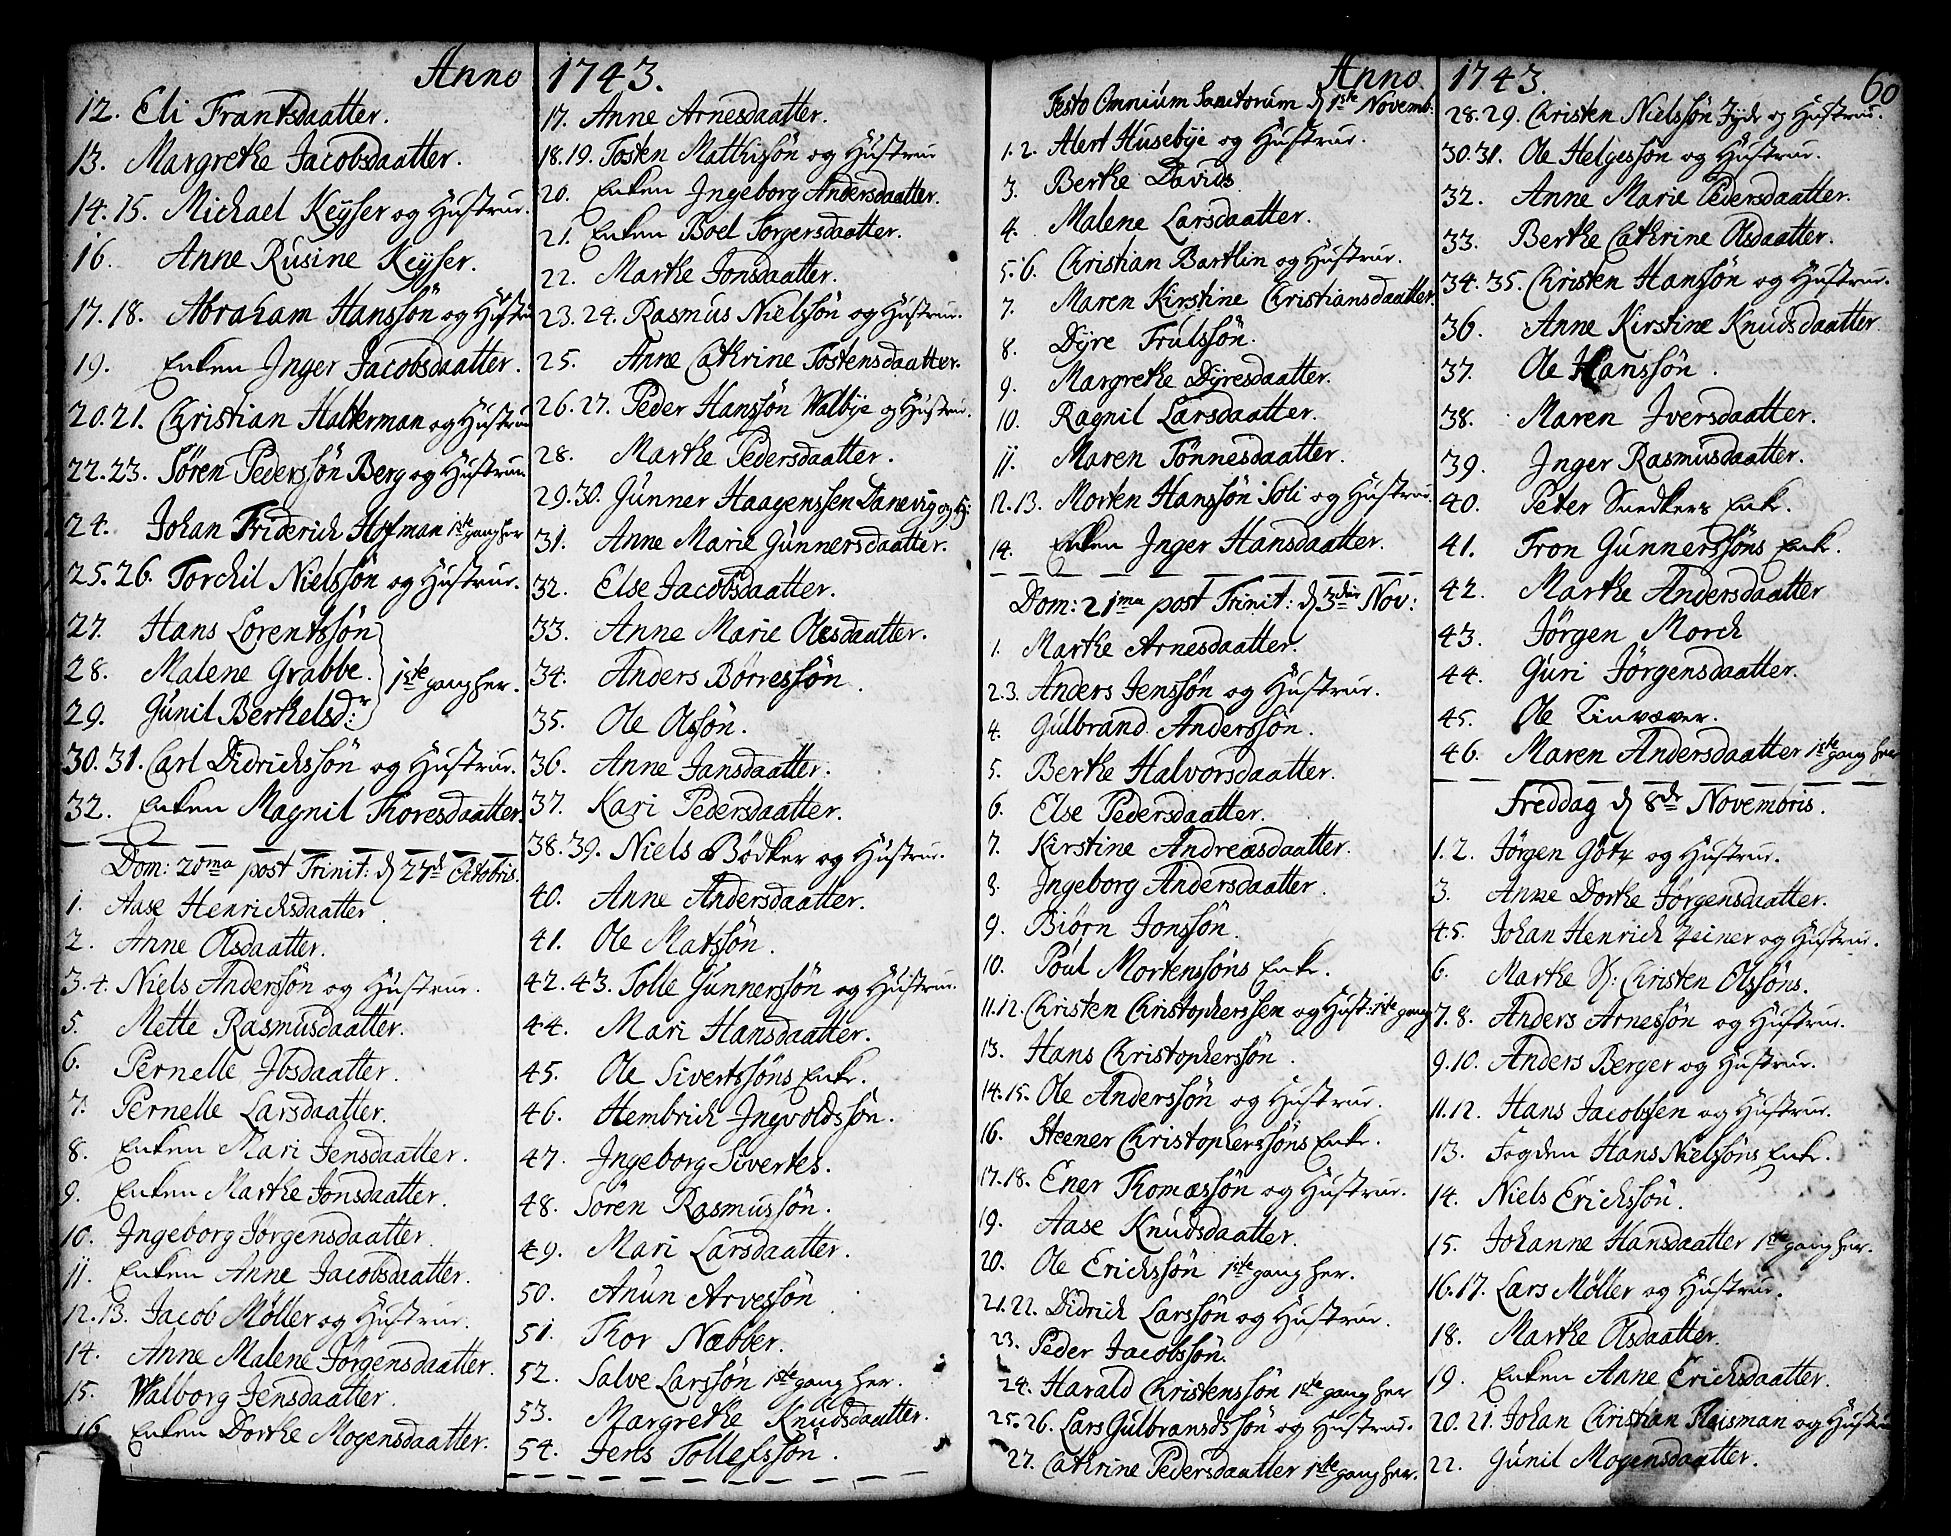 Anno 1743.
12. Eli Frantsdaatter.
13. Margrethe Jacobsdaatter.
14. 15. Michael Keÿser og Hustrue.
16. Anne Rusine Keÿser.
17. 18. Abraham Hanssøn og Hustru
19. Enken Inger Jacobsdaatter.
20. 21. Christian Halkerman og Hustrue
22. 23. Søren Pederssøn Berg og Hustrue
24. Johan Friderich Hofman 1ste gang her
25. 26. Torchil Nielssøn og Hustrue.
27. Hans Lorentssøn
28. Malene Grabbe.
1ste gang her.
29. Gunil Berthelsdr:
30. 31. Carl Didrichssøn og Hustrue.
32. Enken Magnil Thoresdaatter.
Dom: 20ma post Trinit: d 27de Octobris.
1. Aase Henrichsdaatter.
2. Anne Olsdaatter.
3. 4. Niels Anderssøn og Hustrue.
5. Mette Rasmusdaatter.
6. Pernelle Ibsdaatter.
7. Pernelle Larsdaatter.
8. Enken Mari Jensdaatter.
9. Enken Marthe Jonsdaatter.
10. Ingeborg Jørgensdaatter.
11. Enken Anne Jacobsdaatter.
12. 13. Jacob Møller og Hustrue.
14. Anne Malene Jørgensdaatter.
15. Walborg Jensdaatter.
16. Enken Dorthe Mogensdaatter.
17. Anne Arnesdaatter.
18. 19. Tosten Matthissøn og Hustrue
20. Enken Ingeborg Andersdaatter.
21. Enken Boel Torgersdaatter.
22. Marthe Jonsdaatter.
23. 24. Rasmus Nielssøn og Hustrue.
25. Anne Cathrine Tostensdaatter.
26. 27. Peder Hanssøn Walbÿe og Hustrue.
28. Marthe Pedersdaatter.
29. 30. Gunner Haagenssen Danevig og H:
31. Anne Marie Gunnersdaatter.
32. Else Jacobsdaatter.
33. Anne Marie Olesdaatter.
34. Anders Børressøn.
35. Ole Olssøn.
36. Anne Jansdaatter.
37. Kari Pedersdaatter.
38. 39. Niels Bødker og Hustrue.
40. Anne Andersdaatter.
41. Ole Matssøn.
42. 43. Tolle Gunnerssøn og Hustrue.
44. Mari Hansdaatter.
45. Ole Sivertssøns Enke.
46. Hembrich Ingvoldssøn.
47. Ingeborg Sivertes.
48. Søren Rasmussøn.
49. Mari Larsdaatter.
50. Anun Arvessøn
51. Thor Næbber.
52. Salve Larssøn 1ste gang her.
53. Margrethe Knudsdaatter.
54. Jens Tollefssøn.
Anno 1743. 60
Festo Omnium Sanctorum d 1ste Novemb:
1. 2. Alert Husebÿe og Hustrue.
3. Berthe Davids
4. Malene Larsdaatter.
5. 6. Christian Bartlin og Hustrue.
7. Maren Kirstine Christiansdaatter.
8. Dÿre Trulssøn.
9. Margrethe Dÿresdaatter.
10. Ragnil Larsdaatter.
11. Maren Tønnesdaatter.
12. 13. Morten Hanssøn Soli og Hustrue
14. Enken Inger Hansdaatter.
Dom: 21ma post Trinit: d 3die Nov:
1. Marthe Arnesdaatter.
2. 3. Anders Jenssøn og Hustrue.
4. Gulbrand Anderssøn.
5. Berthe Halvorsdaatter.
6. Else Pedersdaatter.
7. Kirstine Andreasdaatter.
8. Ingeborg Andersdaatter.
9. Biørn Jonssøn.
10. Poul Mortenssøns Enke.
11. 12. Christen Christopherssen og Hust: 1ste gang
13. Hans Christopherssøn.
14. 15. Ole Anderssøn og Hustrue.
16. Steener Christopherssøns Enke.
17. 18. Ener Thomessøn og Hustrue.
19. Aase Knudsdaatter.
20. Ole Erichssøn 1ste gang her.
21. 22. Didrich Larssøn og Hustrue.
23. Peder Jacobssøn.
24. Harald Christenssøn 1ste gang her
25. 26. Lars Gulbrandssøn og Hustrue.
27. Cathrine Pedersdaatter 1ste gang her.
28. 29. Christen Nielssøn Jÿde og Hustrue.
30. 31. Ole Helgessøn og Hustrue.
32. Anne Marie Pedersdaatter.
33. Berthe Cathrine Olsdaatter.
34. 35. Christen Hanssøn og Hustrue.
36. Anne Kirstine Knudsdaatter.
37. Ole Hanssøn.
38. Maren Iversdaatter.
39. Inger Rasmusdaatter.
40. Peter Snedkers Enke.
41. Tron Gunnerssøns Enke.
42. Marthe Andersdaatter
43. Jørgen Morch
44. Guri Jørgensdaatter.
45. Ole Linvæver.
46. Maren Andersdaatter 1ste gang her
Freddag d 8de Novembris.
1. 2. Jørgen Gøtz og Hustrue.
3. Anne Dorthe Jørgensdaatter.
4. 5. Johan Henrich Zeiner og Hustrue.
6. Marthe S: Christen Olssøns.
7. 8. Anders Arnessøn og Hustrue.
9. 10. Anders Berger og Hustrue.
11. 12. Hans Jacobssen og Hustrue.
13. Fogden Hans Nielssøns Enke.
14. Niels Erichssøn.
15. Johanne Hansdaatter 1ste gang her.
16. 17. Lars Møller og Hustrue.
18. Marthe Olsdaatter.
19. Enken Anne Erichsdaatter.
20. 21. Johan Christian Fleisman og Hustrue
22. Gunil Mogensdaatter.